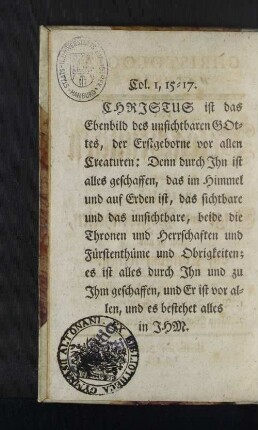 STAATS- UND UNIVERSITÄTS-BIBLIOTHEK HAMBURG
Col. 1, 15-17.
CHRISTUS ist das
Ebenbild des unsichtbaren GOt-
tes, der Erstgeborne vor allen
Creaturen: Denn durch Ihn ist
alles geschaffen, das im Himmel
und auf Erden ist, das sichtbare
und das unsichtbare, beide die
Thronen und Herrschaften und
Fürstenthüme und Obrigkeiten;
es ist alles durch Ihn und zu
Ihm geschaffen, und Er ist vor al-
len, und es bestehet alles
in IHM.
EX BIBLIOTHECA GYMNASII ALTONANI